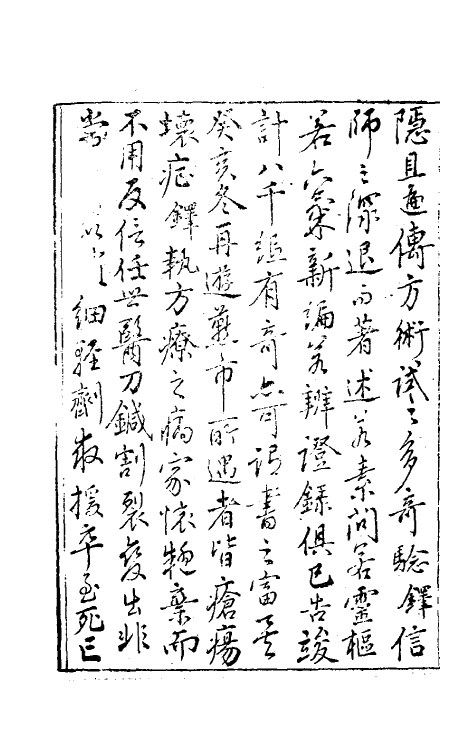 隱且遍傳方術試之多奇驗鐸信
師之深退而著述若素問若靈樞
若六氣新編若辨證錄俱已告竣
計八千紙有奇亦可謂書之富矣
癸亥冬再遊燕市所遇者皆瘡瘍
壞症鐸執方療之病家懷疑棄而
不用反信任世醫刀鍼割裂發出非
常 細輕劑救援卒至死亡